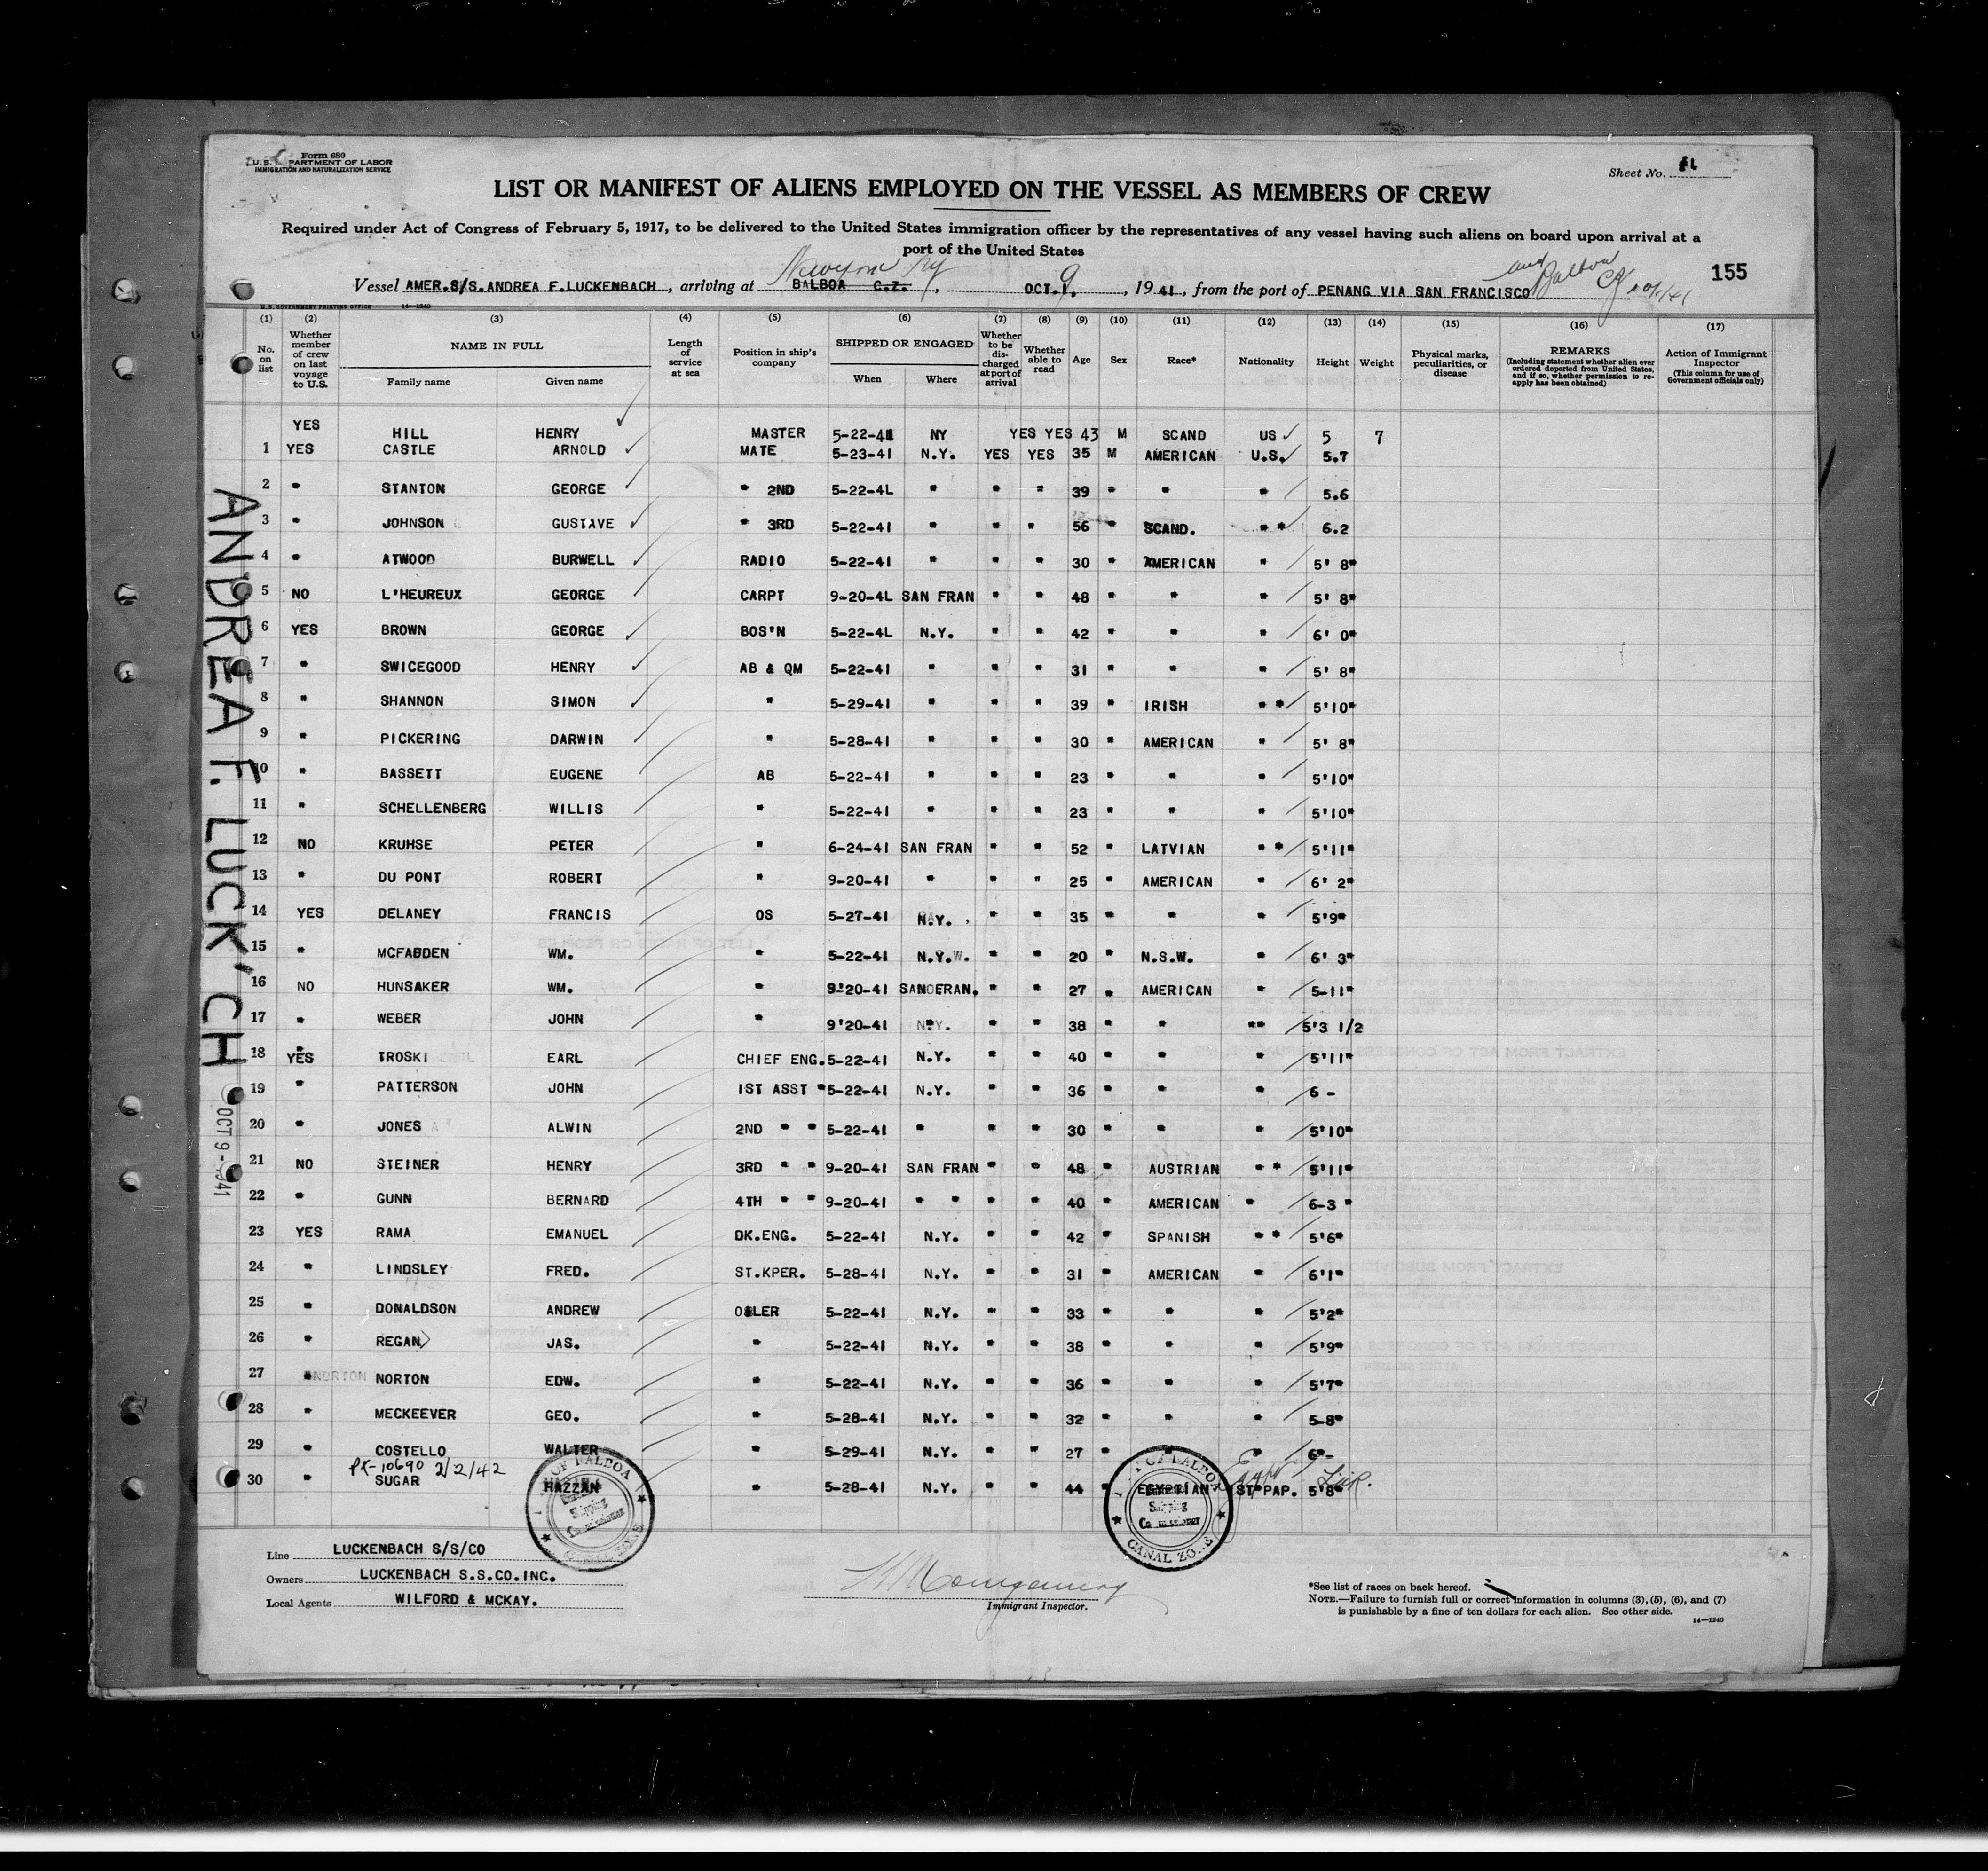 Form 680
U.S. DEPARTMENT OF LABOR
IMMIGRATION AND NATURALIZATION SERVICE
Sheet No.
LIST OR MANIFEST OF ALIENS EMPLOYED ON THE VESSEL AS MEMBERS OF CREW
Required under Act of Congress of February 5, 1917, to be delivered to the United States immigration officer by the representatives of any vessel having such aliens on board upon arrival at a
port of the United States
155
Vessel AMER.S/S.ANDREA F.LUCKENBACH, arriving at BALBOA C.Z., OCT.1. 9, 1941, from the port of PENANG VIA SAN FRANCISCO and Balboa CZ 10/1/41
U.S. GOVERNMENT PRINTING OFFICE 14—1240
(1) (2) (3) (4) (5) (6) (7) (8) (9) (10) (11) (12) (13) (14) (15) (16) (17)
No. on list
Whether member of crew on last voyage to U.S.
NAME IN FULL
Family name Given name
Length of service at sea
Position in ship's company
SHIPPED OR ENGAGED
When Where
Whether to be discharged at port of arrival
Whether able to read
Age Sex Race* Nationality Height Weight
Physical marks, peculiarities, or disease
REMARKS
(Including statement whether alien ever ordered deported from United States, and if so, whether permission to re-apply has been obtained)
Action of Immigrant Inspector
(This column for use of Government officials only)
YES HILL HENRY MASTER 5-22-41 NY YES YES 43 M SCAND US 5 7
1 YES CASTLE ARNOLD MATE 5-23-41 N.Y. YES YES 35 M AMERICAN U.S. 5.7
2 " STANTON GEORGE " 2ND 5-22-4L " " " 39 " " " 5.6
3 " JOHNSON GUSTAVE " 3RD 5-22-41 " " " 56 " SCAND. " " 6.2
4 " ATWOOD BURWELL RADIO 5-22-41 " " " 30 " AMERICAN " 5' 8"
5 NO L'HEUREUX GEORGE CARPT 9-20-4L SAN FRAN " " 48 " " " 5' 8"
6 YES BROWN GEORGE BOS'N 5-22-4L N.Y. " " 42 " " " 6' 0"
7 " SWICEGOOD HENRY AB & QM 5-22-41 " " " 31 " " " 5' 8"
8 " SHANNON SIMON " 5-29-41 " " " 39 " IRISH " " 5'10"
9 " PICKERING DARWIN " 5-28-41 " " " 30 " AMERICAN " 5' 8"
10 " BASSETT EUGENE AB 5-22-41 " " " 23 " " " 5'10"
11 " SCHELLENBERG WILLIS " 5-22-41 " " " 23 " " " 5'10"
12 NO KRUHSE PETER " 6-24-41 SAN FRAN " " 52 " LATVIAN " " 5'11"
13 " DU PONT ROBERT " 9-20-41 " " " 25 " AMERICAN " 6' 2"
14 YES DELANEY FRANCIS OS 5-27-41 N.Y. " " 35 " " " 5'9"
15 " MCFADDEN WM. " 5-22-41 N.Y. " " 20 " N.S.W. " 6' 3"
16 NO HUNSAKER WM. " 9'20-41 SAN FRAN. " " 27 " AMERICAN " 5-11"
17 " WEBER JOHN " 9'20-41 " " " 38 " " " " 5'3 1/2
18 YES TROSKI EARL CHIEF ENG. 5-22-41 N.Y. " " 40 " " " 5'11"
19 " PATTERSON JOHN 1ST ASST " 5-22-41 N.Y. " " 36 " " " 6 -
20 " JONES ALWIN 2ND " " 5-22-41 " " " 30 " " " 5'10"
21 NO STEINER HENRY 3RD " " 9-20-41 SAN FRAN " " 48 " AUSTRIAN " " 5'11"
22 " GUNN BERNARD 4TH " " 9-20-41 " " " " 40 " AMERICAN " 6-3 "
23 YES RAMA EMANUEL DK.ENG. 5-22-41 N.Y. " " 42 " SPANISH " " 5'6"
24 " LINDSLEY FRED. ST.KPER. 5-28-41 N.Y. " " 31 " AMERICAN " 6'1"
25 " DONALDSON ANDREW OILER 5-22-41 N.Y. " " 33 " " " 5'2"
26 " REGAN JAS. " 5-22-41 N.Y. " " 38 " " " 5'9"
27 " NORTON NORTON EDW. " 5-22-41 N.Y. " " 36 " " " 5'7"
28 " MECKEEVER GEO. " 5-28-41 N.Y. " " 32 " " " 5-8"
29 " COSTELLO WALTER " 5-29-41 N.Y. " " 27 " " " 6"-
PK-10690 2/2/42
30 " SUGAR HAZZAN " 5-28-41 N.Y. " " 44 " EGYPTIAN 1ST PAP. 5'8"
ANDREA F. LUCK'CH
OCT 9 - 1941
Line LUCKENBACH S/S/CO
Owners LUCKENBACH S.S.CO.INC.
Local Agents WILFORD & MCKAY.
OF BALBOA
Shipping
Commissioner
OF BALBOA
Shipping
Commissioner
CANAL ZONE
Montgomery
Immigrant Inspector.
*See list of races on back hereof.
NOTE.—Failure to furnish full or correct information in columns (3), (5), (6), and (7)
is punishable by a fine of ten dollars for each alien. See other side.
14—1240